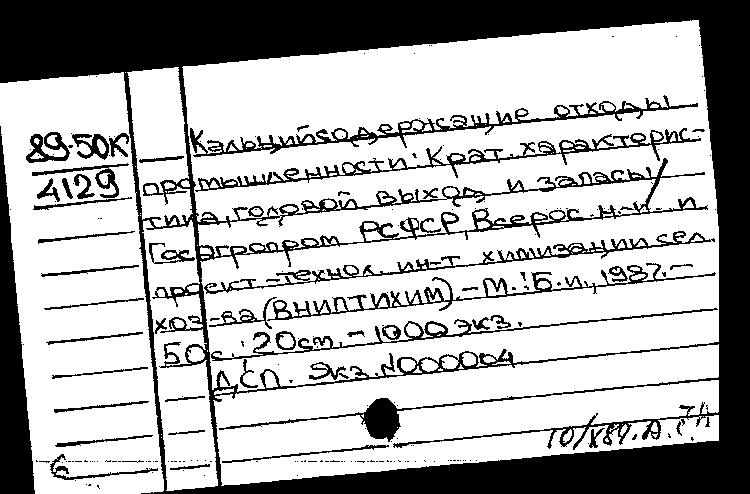 89-50К
4129
Кальцийсодержащие отходы
промышленности: Крат. характерис-
тика, годовой выход и запасы /
Госагропром РСФСР, Всерос. н.-и. и
проект.-технол. ин-т химизации сел.
хоз-ва (ВНИПТИХИМ). - М.: Б.и., 1987. -
50с.; 20см. - 1000 экз.
ДСП. Экз. №000004
10/X89. А.
6